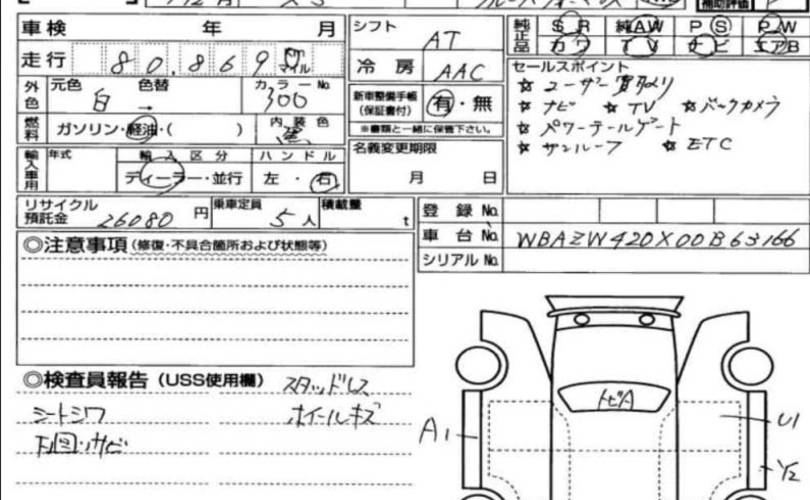 車検 年 月
走行 80,869 km マイル
外色 元色 色替 カラーNo
白 → 300
燃料 ガソリン・軽油・( ) 内装色 黒
輸入車用 年式 輸入区分 ハンドル
ディーラー・並行 左・右
シフト AT
冷房 AAC
新車整備手帳(保証書付) 有・無
※書類と一緒に保管下さい。
名義変更期限
月 日
純正品 SR 純AW PS PW
カワ TV ナビ エアB
セールスポイント
☆ユーザー買取メリ
☆ナビ ☆TV ☆バックカメラ
☆パワーテールゲート
☆サンルーフ ☆ETC
リサイクル預託金 26080 円 乗車定員 5人 積載量 t
登録No.
車台No. WBAZW420X00B63166
シリアルNo.
◎注意事項(修復・不具合箇所および状態等)
◎検査員報告(USS使用欄) スタッドレス
シートシワ ホイールキズ
下回りサビ
トビA
A1
U1
Y2